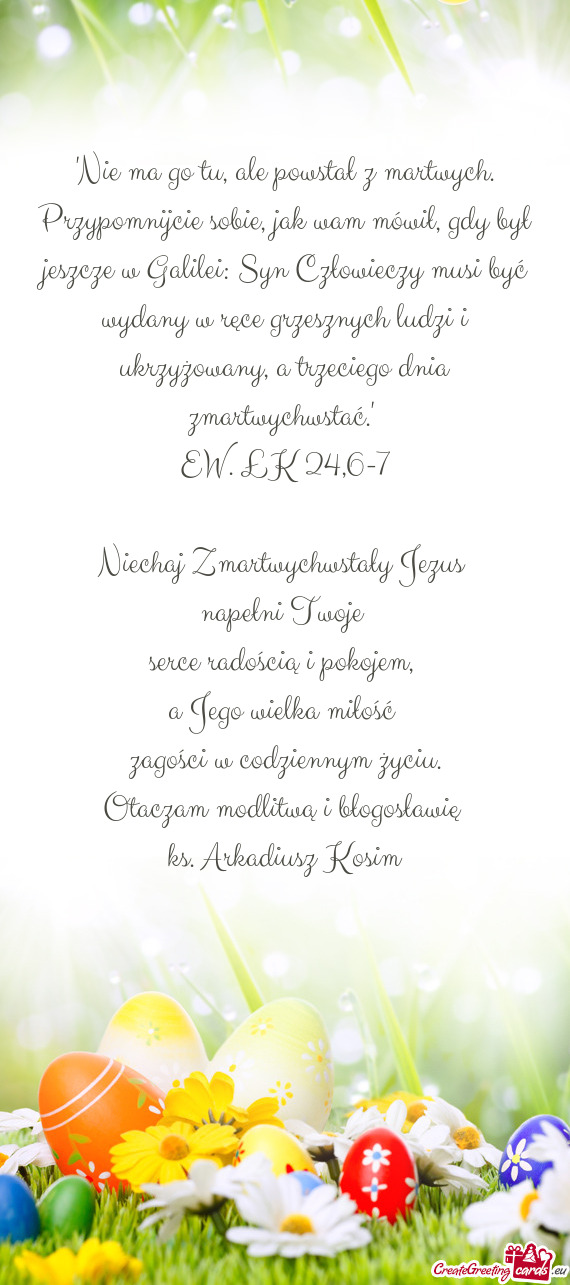 "Nie ma go tu, ale powstał z martwych.
Przypomnijcie sobie, jak wam mówił, gdy był
jeszcze w Galilei: Syn Człowieczy musi być
wydany w ręce grzesznych ludzi i
ukrzyżowany, a trzeciego dnia
zmartwychwstać."
EW. ŁK 24,6-7
Niechaj Zmartwychwstały Jezus
napełni Twoje
serce radością i pokojem,
a Jego wielka miłość
zagości w codziennym życiu.
Otaczam modlitwą i błogosławię
ks. Arkadiusz Kosim
CreateGreetingcards.eu